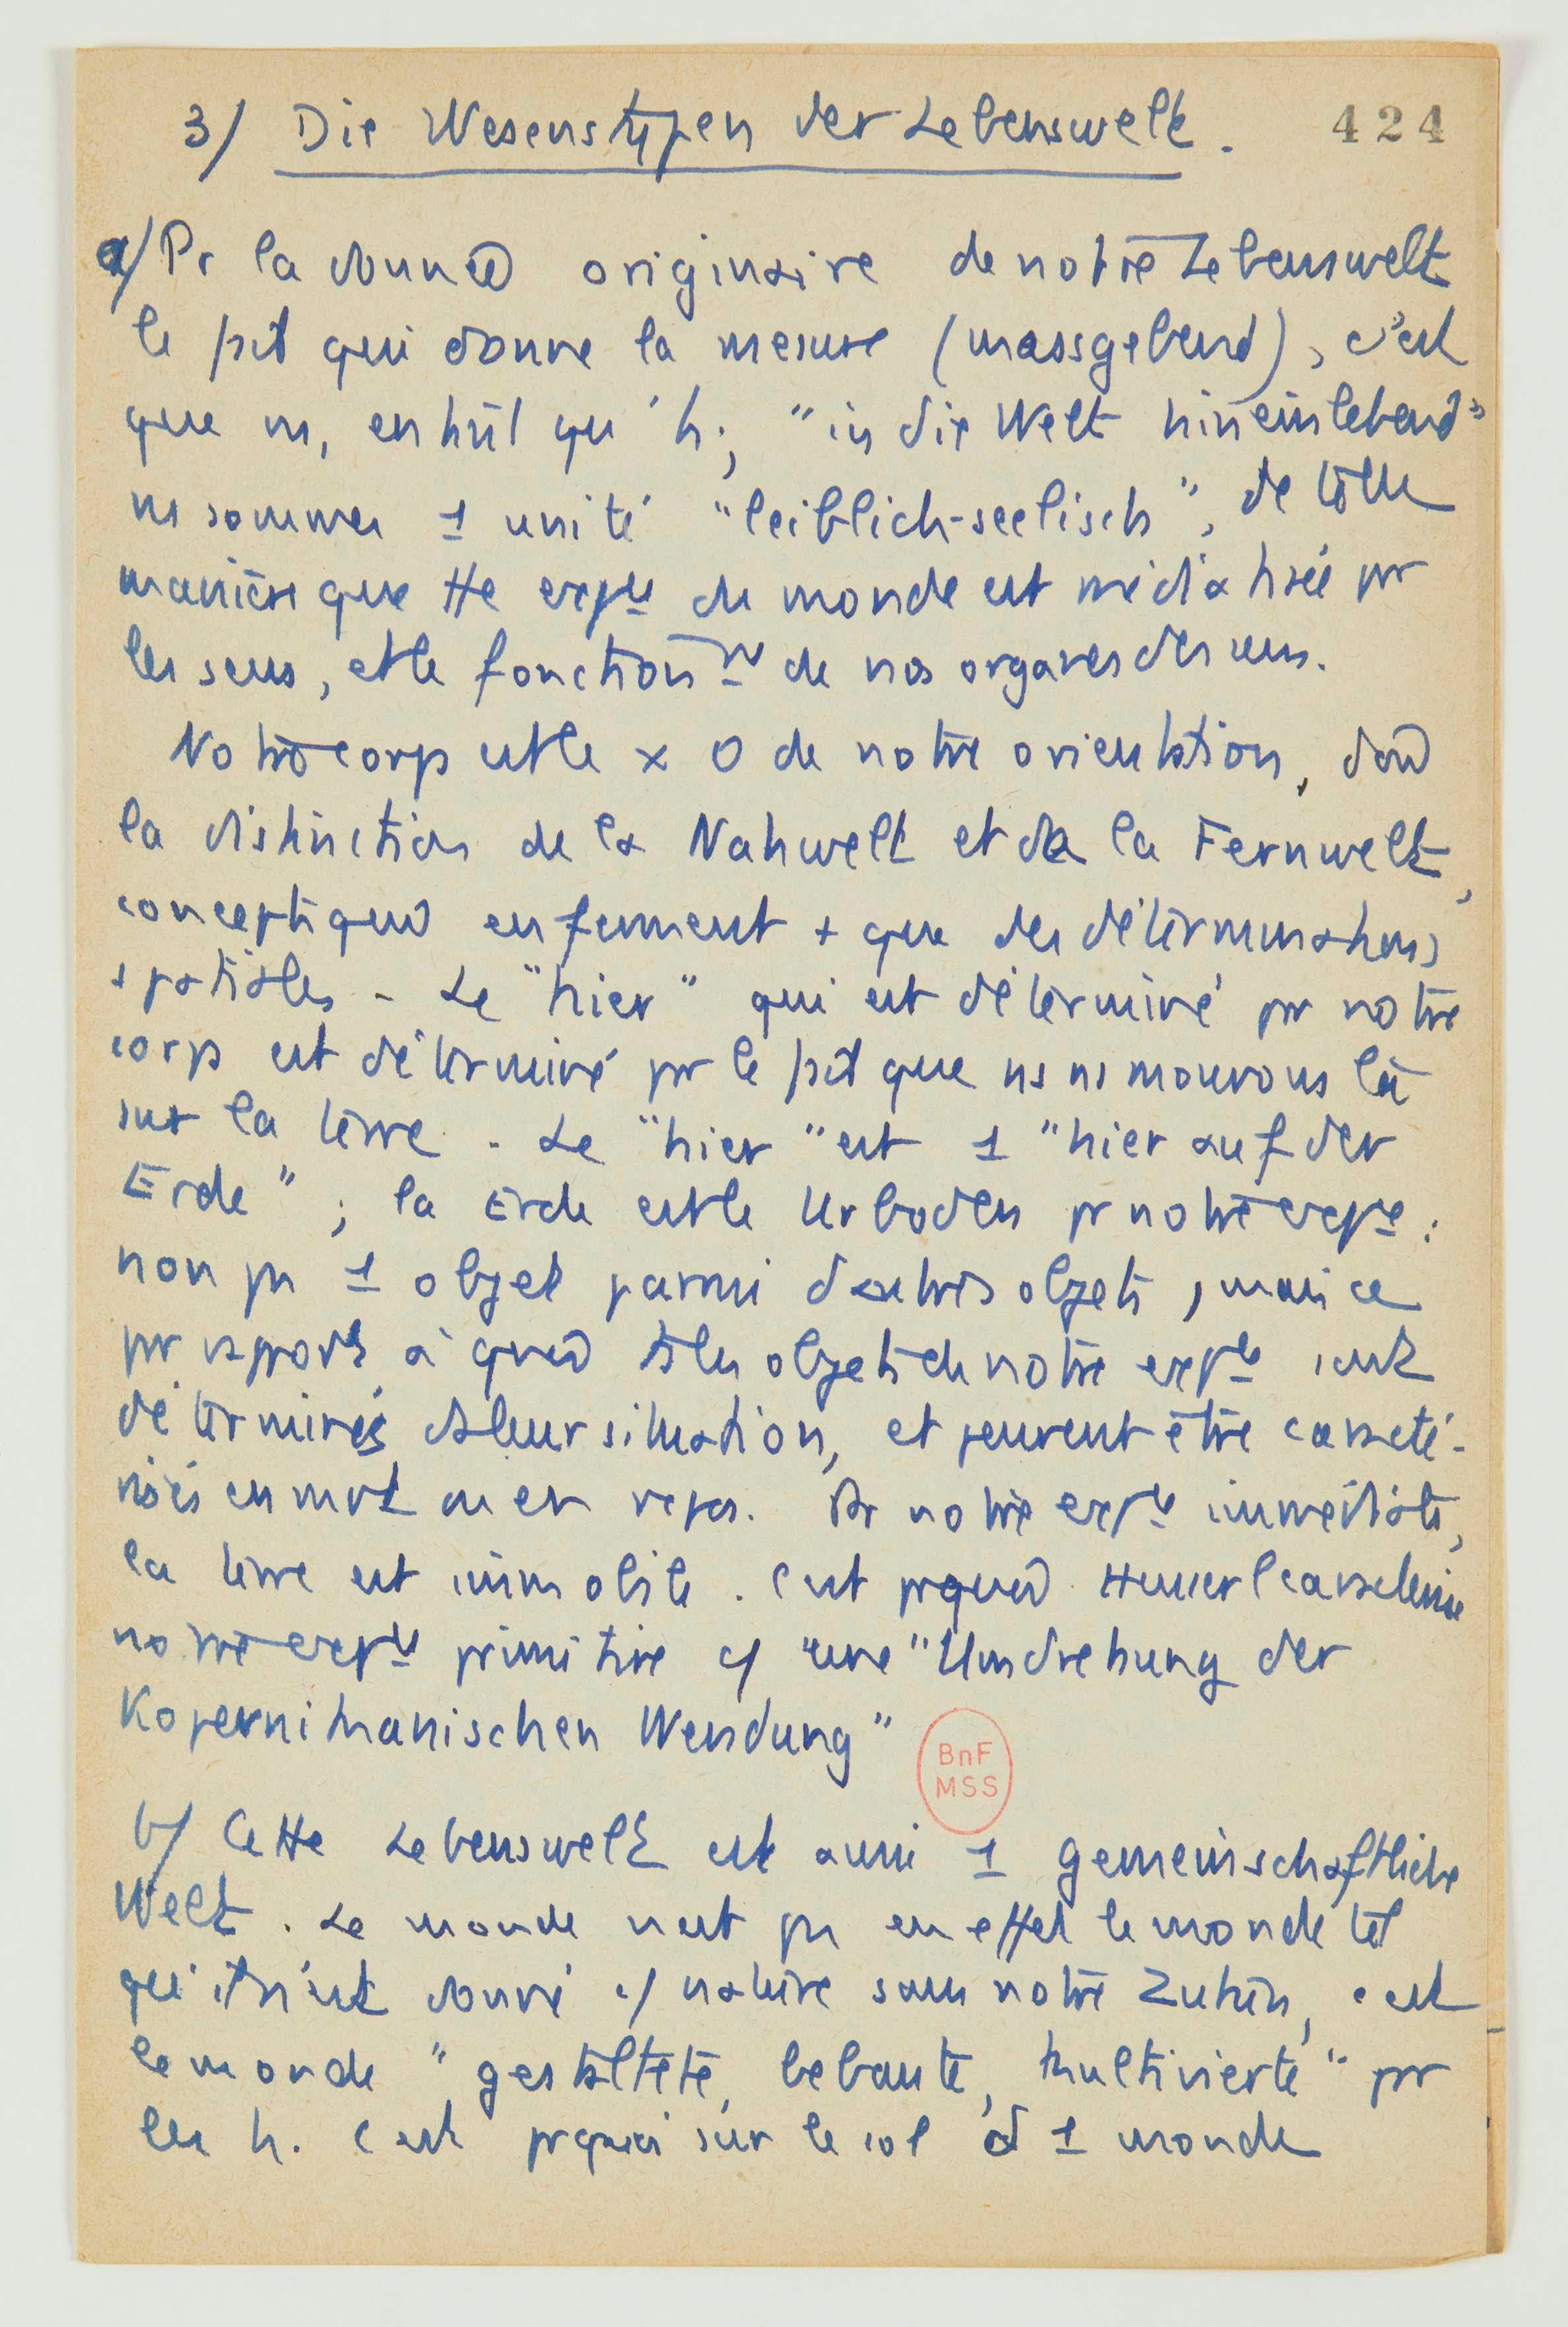 3/ Die Wesenstypen der Lebenswelt. 424
a/ Pr la donnée originaire de notre Lebenswelt
le fait qui donne la mesure (massgebend), c'est
que ns, en tant qu'h., "in die Welt hineinlebend"
ns sommes 1 unité "leiblich-seelisch", de telle
manière que tte expce du monde est médiatisée pr
les sens, et le fonctionnt de nos organes des sens.
Notre corps est le x 0 de notre orientation, d'où
la distinction de la Nahwelt et de la Fernwelt,
concepts qui enferment + que des déterminations
spatiales - Le "hier" qui est déterminé pr notre
corps est déterminé pr le fait que ns ns mouvons là
sur la terre. Le "hier" est 1 "hier auf der
Erde"; la Erde est le Urboden pr notre expce :
non pas 1 objet parmi d'autres objets, mais ce
pr rapport à quoi ts les objets de notre expce sont
déterminés ds leur situation, et peuvent être caracté-
risés en mvt ou en repos. Pr notre expce immédiate,
la terre est immobile. C'est prquoi Husserl caractérise
notre expce primitive c/ une "Umdrehung der
Kopernikanischen Wendung"
BnF
MSS
b/ Cette Lebenswelt est aussi 1 gemeinschaftliche
Welt. Le monde n'est pas en effet le monde tel
qu'il serait donné c/ nature sans notre Zutun, c'est
le monde "gestaltete, bebaute, kultivierte" pr
les h. C'est prquoi sur le sol d'1 monde